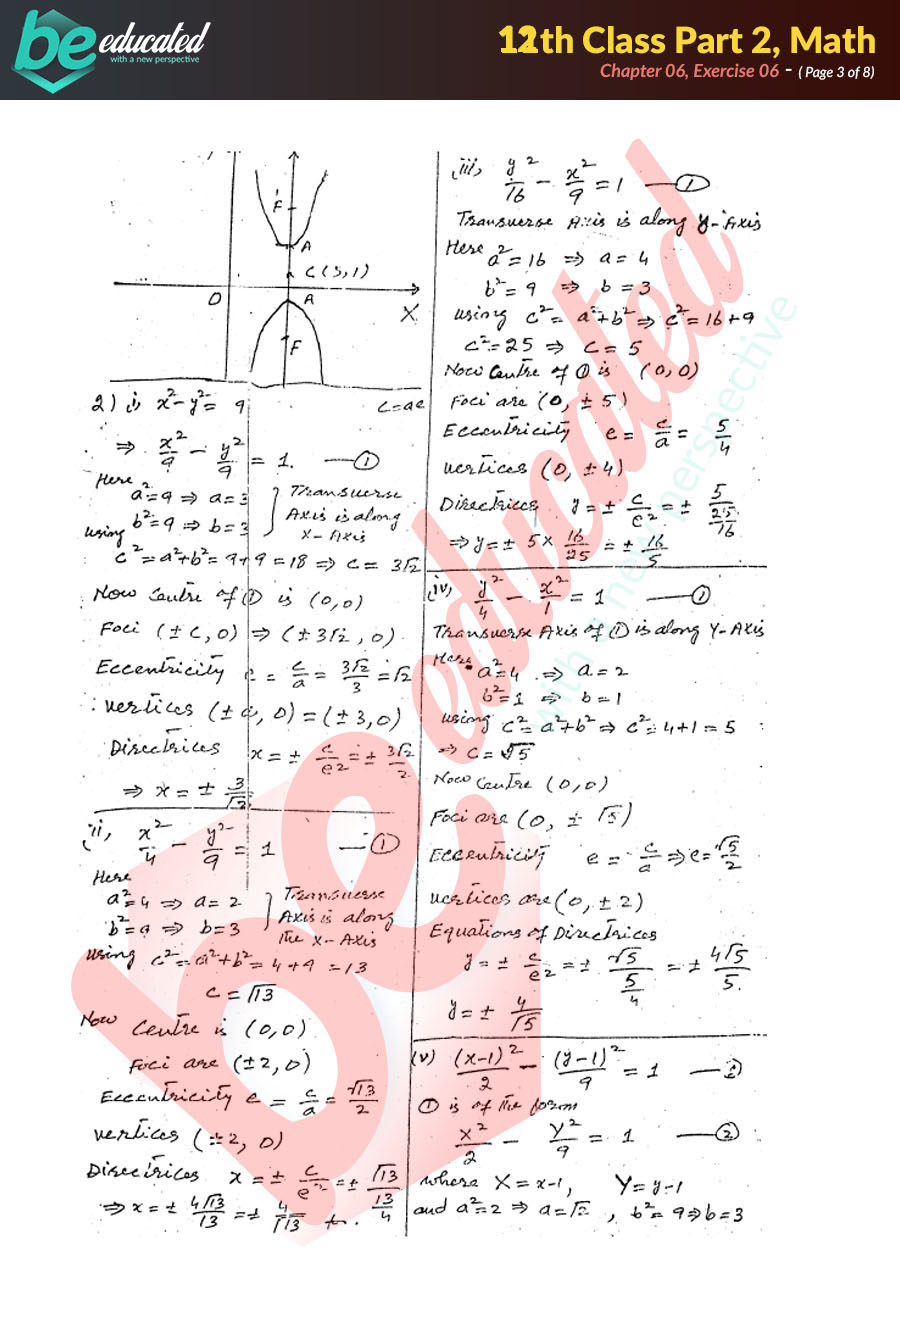 be educated
with a new perspective
12th Class Part 2, Math
Chapter 06, Exercise 06 - ( Page 3 of 8)
F
A
C (3,1)
O
A
X
F
2) i, x² - y² = 9
c = ae
⇒ x²/9 - y²/9 = 1. —①
Here
a² = 9 ⇒ a = 3
b² = 9 ⇒ b = 3
} Transverse
Axis is along
X-Axis
using
c² = a² + b² = 9 + 9 = 18 ⇒ c = 3√2
Now Centre of ① is (0,0)
Foci (± c, 0) ⇒ (± 3√2, 0)
Eccentricity e = c/a = 3√2/3 = √2
vertices (± a, 0) = (± 3, 0)
Directrices x = ± c/e² = ± 3√2/2
⇒ x = ± 3/√2
ii, x²/4 - y²/9 = 1 —①
Here
a² = 4 ⇒ a = 2
b² = 9 ⇒ b = 3
} Transverse
Axis is along
the X-Axis
using c² = a² + b² = 4 + 9 = 13
c = √13
Now Centre is (0,0)
Foci are (± 2, 0)
Eccentricity e = c/a = √13/2
vertices (± 2, 0)
Directrices x = ± c/e² = ± √13/(13/4)
⇒ x = ± 4√13/13 = ± 4/√13
iii, y²/16 - x²/9 = 1 —①
Transverse Axis is along Y-Axis
Here a² = 16 ⇒ a = 4
b² = 9 ⇒ b = 3
using c² = a² + b² ⇒ c² = 16 + 9
c² = 25 ⇒ c = 5
Now Centre of ① is (0,0)
Foci are (0, ± 5)
Eccentricity e = c/a = 5/4
vertices (0, ± 4)
Directrices y = ± c/e² = ± 5/(25/16)
⇒ y = ± 5 × 16/25 = ± 16/5
iv) y²/4 - x²/1 = 1 —①
Transverse Axis of ① is along Y-Axis
Here a² = 4 ⇒ a = 2
b² = 1 ⇒ b = 1
using c² = a² + b² ⇒ c² = 4 + 1 = 5
⇒ c = √5
Now Centre (0,0)
Foci are (0, ± √5)
Eccentricity e = c/a ⇒ e = √5/2
vertices are (0, ± 2)
Equations of Directrices
y = ± c/e² = ± √5/(5/4) = ± 4√5/5.
y = ± 4/√5
(v) (x-1)²/2 - (y-1)²/9 = 1 —①
① is of the form
X²/2 - Y²/9 = 1 —②
where X = x-1, Y = y-1
and a² = 2 ⇒ a = √2, b² = 9 ⇒ b = 3
be educated
with a new perspective